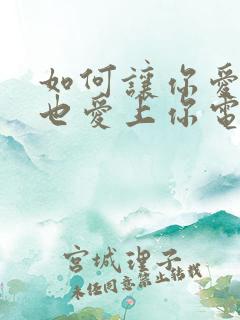 如何讓你愛
也愛上你電
宮城理子
未经同意禁止转载